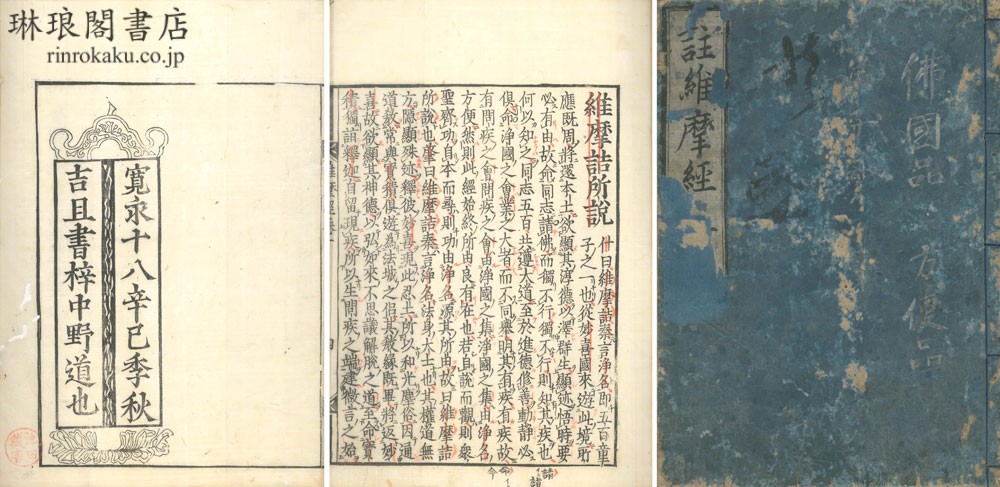 琳琅閣書店
rinrokaku.co.jp
寛永十八辛巳季秋
吉旦書梓中野道也
維摩詰所説
什曰維摩詰秦言淨名即五百童
子之一也從妙喜國來遊此境所
應既周將還本土欲顯其淳德以澤群生顯迹悟時要
必有由故命同志請佛而獨不行獨不行則知其疾也
何以知之同志五百共遵大道至於進德修善動靜必
俱命淨國之會業之大者而不同舉明其有疾有疾故
有問疾之會問疾之會由淨國之集淨國之集由淨名
方便然則此經始終所由良有在也若自說而觀則衆
聖齊功自本而尋則功由淨名源其所由故曰維摩詰
所說也肇曰維摩詰秦言淨名法身大士也其權道無
方隱顯殊迹釋彼妙喜現此忍土所以和光塵俗因通
道教常與寶積俱遊為法城之侶其教緣既畢將返妙
喜故欲顯其神德以弘如來不思議解脫之道至命寶
積獨詣釋迦自留現疾所以生問疾之端建微言之始
註維摩經
佛國品 方便品